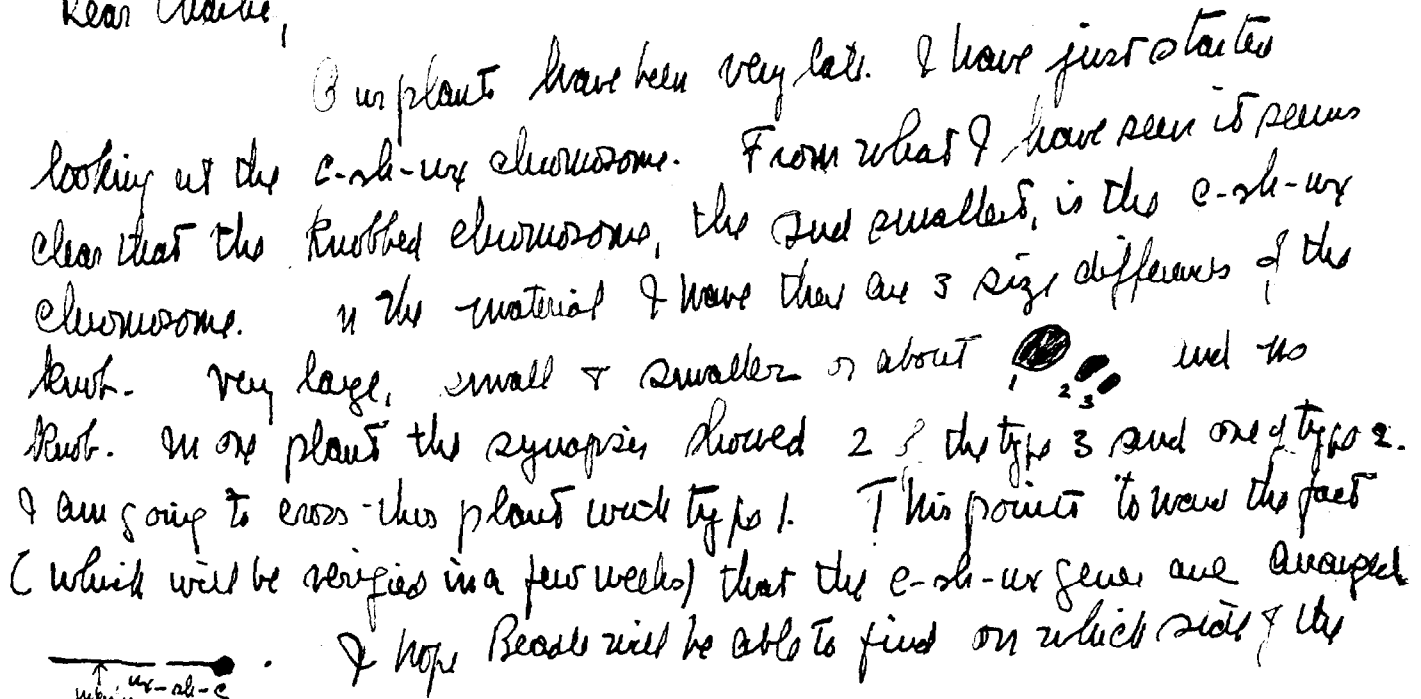 Dear Charlie,
Our plants have been very late. I have just started
looking at the c-sh-wx chromosome. From what I have seen it seems
clear that the knobbed chromosome, the 2nd smallest, is the c-sh-wx
chromosome. In the material I have there are 3 size differences of the
knob. Very large, small & smaller or about 1 2 3 and no
knob. In one plant the synapsis showed 2 of the type 3 and one of type 2.
I am going to cross this plant with type 1. This points toward the fact
(which will be verified in a few weeks) that the c-sh-wx genes are arranged
wx-sh-c . I hope Beadle will be able to find on which side of the